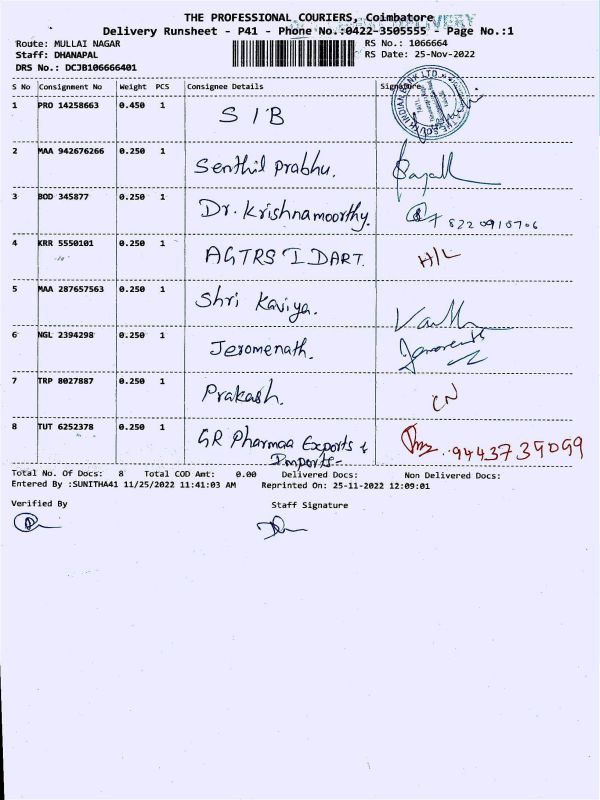 THE PROFESSIONAL COURIERS, Coimbatore
Delivery Runsheet - P41 - Phone No.:0422-3505555 - Page No.:1
Route: MULLAI NAGAR RS No.: 1066664
Staff: DHANAPAL RS Date: 25-Nov-2022
DRS No.: DCJB106666401
S No Consignment No Weight PCS Consignee Details Signature
1 PRO 14258663 0.450 1 SIB
2 MAA 942676266 0.250 1 Senthil Prabhu.
3 BOD 345877 0.250 1 Dr. Krishnamoorthy. 8220910706
4 KRR 5550101 0.250 1 AGTRS I DART. H/L
5 MAA 287657563 0.250 1 Shri Kaviya.
6 NGL 2394298 0.250 1 Jeromenath.
7 TRP 8027887 0.250 1 Prakash. CN
8 TUT 6252378 0.250 1 GR Pharmaa Exports &
Imports-
9443739099
Total No. Of Docs: 8 Total COD Amt: 0.00 Delivered Docs: Non Delivered Docs:
Entered By :SUNITHA41 11/25/2022 11:41:03 AM Reprinted On: 25-11-2022 12:09:01
Verified By Staff Signature